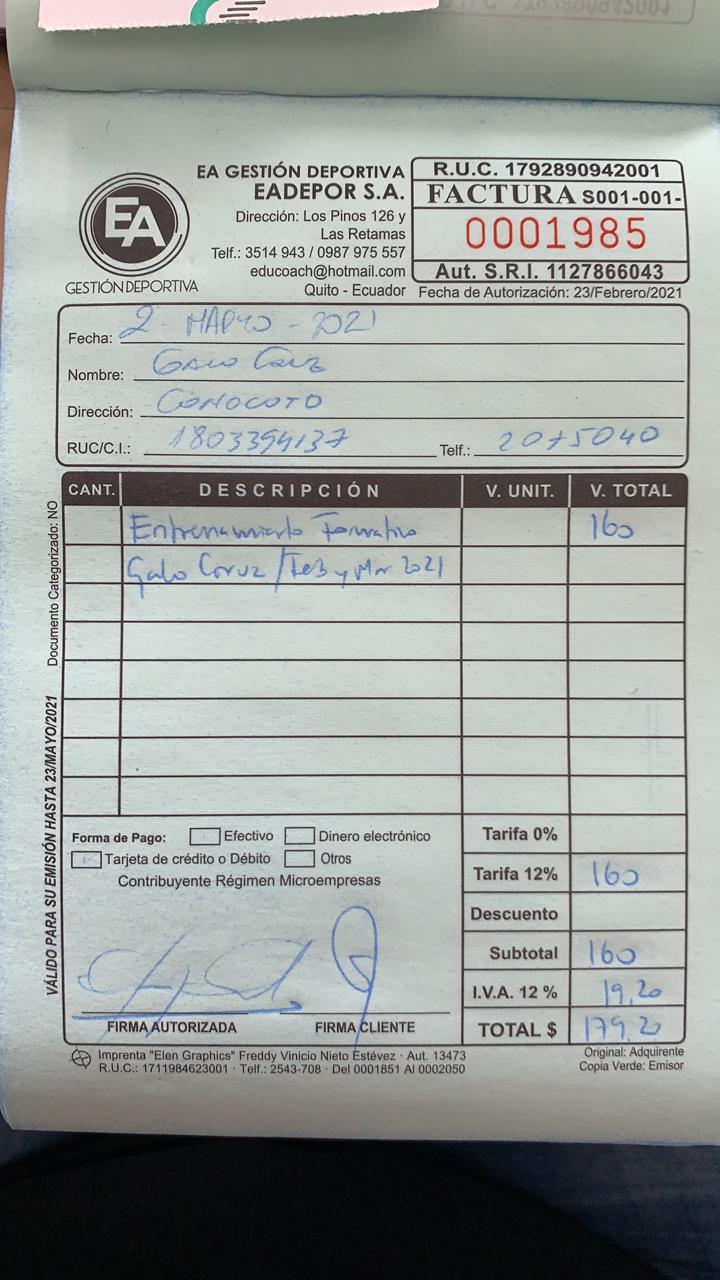 EA GESTIÓN DEPORTIVA
EADEPOR S.A.
Dirección: Los Pinos 126 y
Las Retamas
Telf.: 3514 943 / 0987 975 557
educoach@hotmail.com
Quito - Ecuador
EA
GESTIÓN DEPORTIVA
R.U.C. 1792890942001
FACTURA S001-001-
0001985
Aut. S.R.I. 1127866043
Fecha de Autorización: 23/Febrero/2021
Fecha: 2 MARZO - 2021
Nombre: Galo Coruz
Dirección: CONOCOTO
RUC/C.I.: 1803394137 Telf.: 2075040
CANT. DESCRIPCIÓN V. UNIT. V. TOTAL
Entrenamiento Formativo 160
Galo Coruz / Feb y Mar 2021
Documento Categorizado: NO
VÁLIDO PARA SU EMISIÓN HASTA 23/MAYO/2021
Forma de Pago: Efectivo Dinero electrónico
Tarjeta de crédito o Débito Otros
Contribuyente Régimen Microempresas
Tarifa 0%
Tarifa 12% 160
Descuento
Subtotal 160
I.V.A. 12 % 19,20
TOTAL $ 179,20
FIRMA AUTORIZADA FIRMA CLIENTE
Imprenta "Elen Graphics" Freddy Vinicio Nieto Estévez · Aut. 13473
R.U.C.: 1711984623001 · Telf.: 2543-708 · Del 0001851 Al 0002050
Original: Adquirente
Copia Verde: Emisor